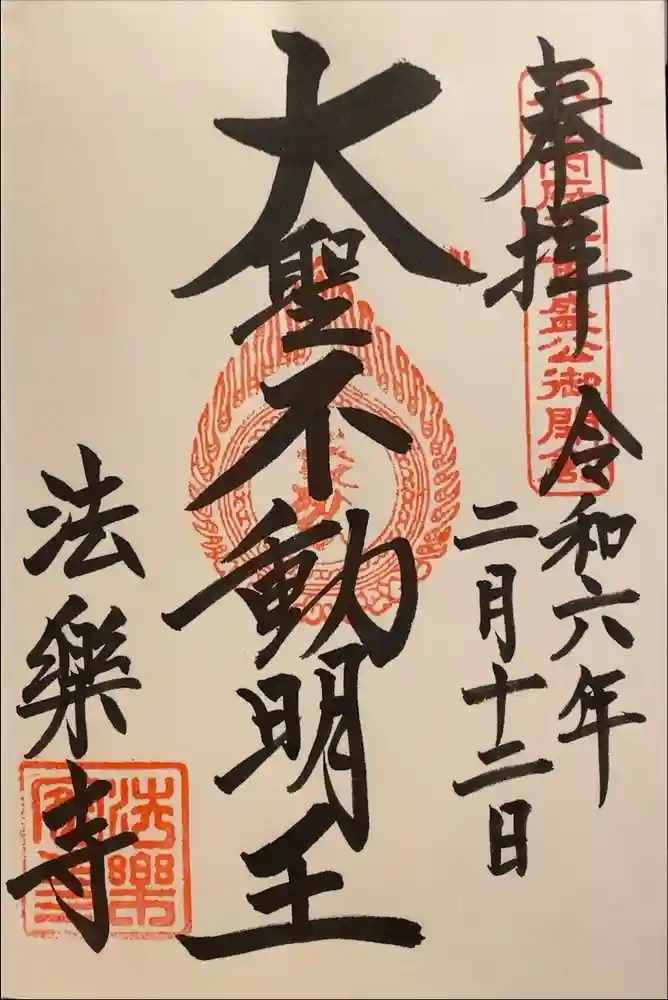 奉拝
令和六年
二月十二日
大聖不動明王
法樂寺
法樂寺